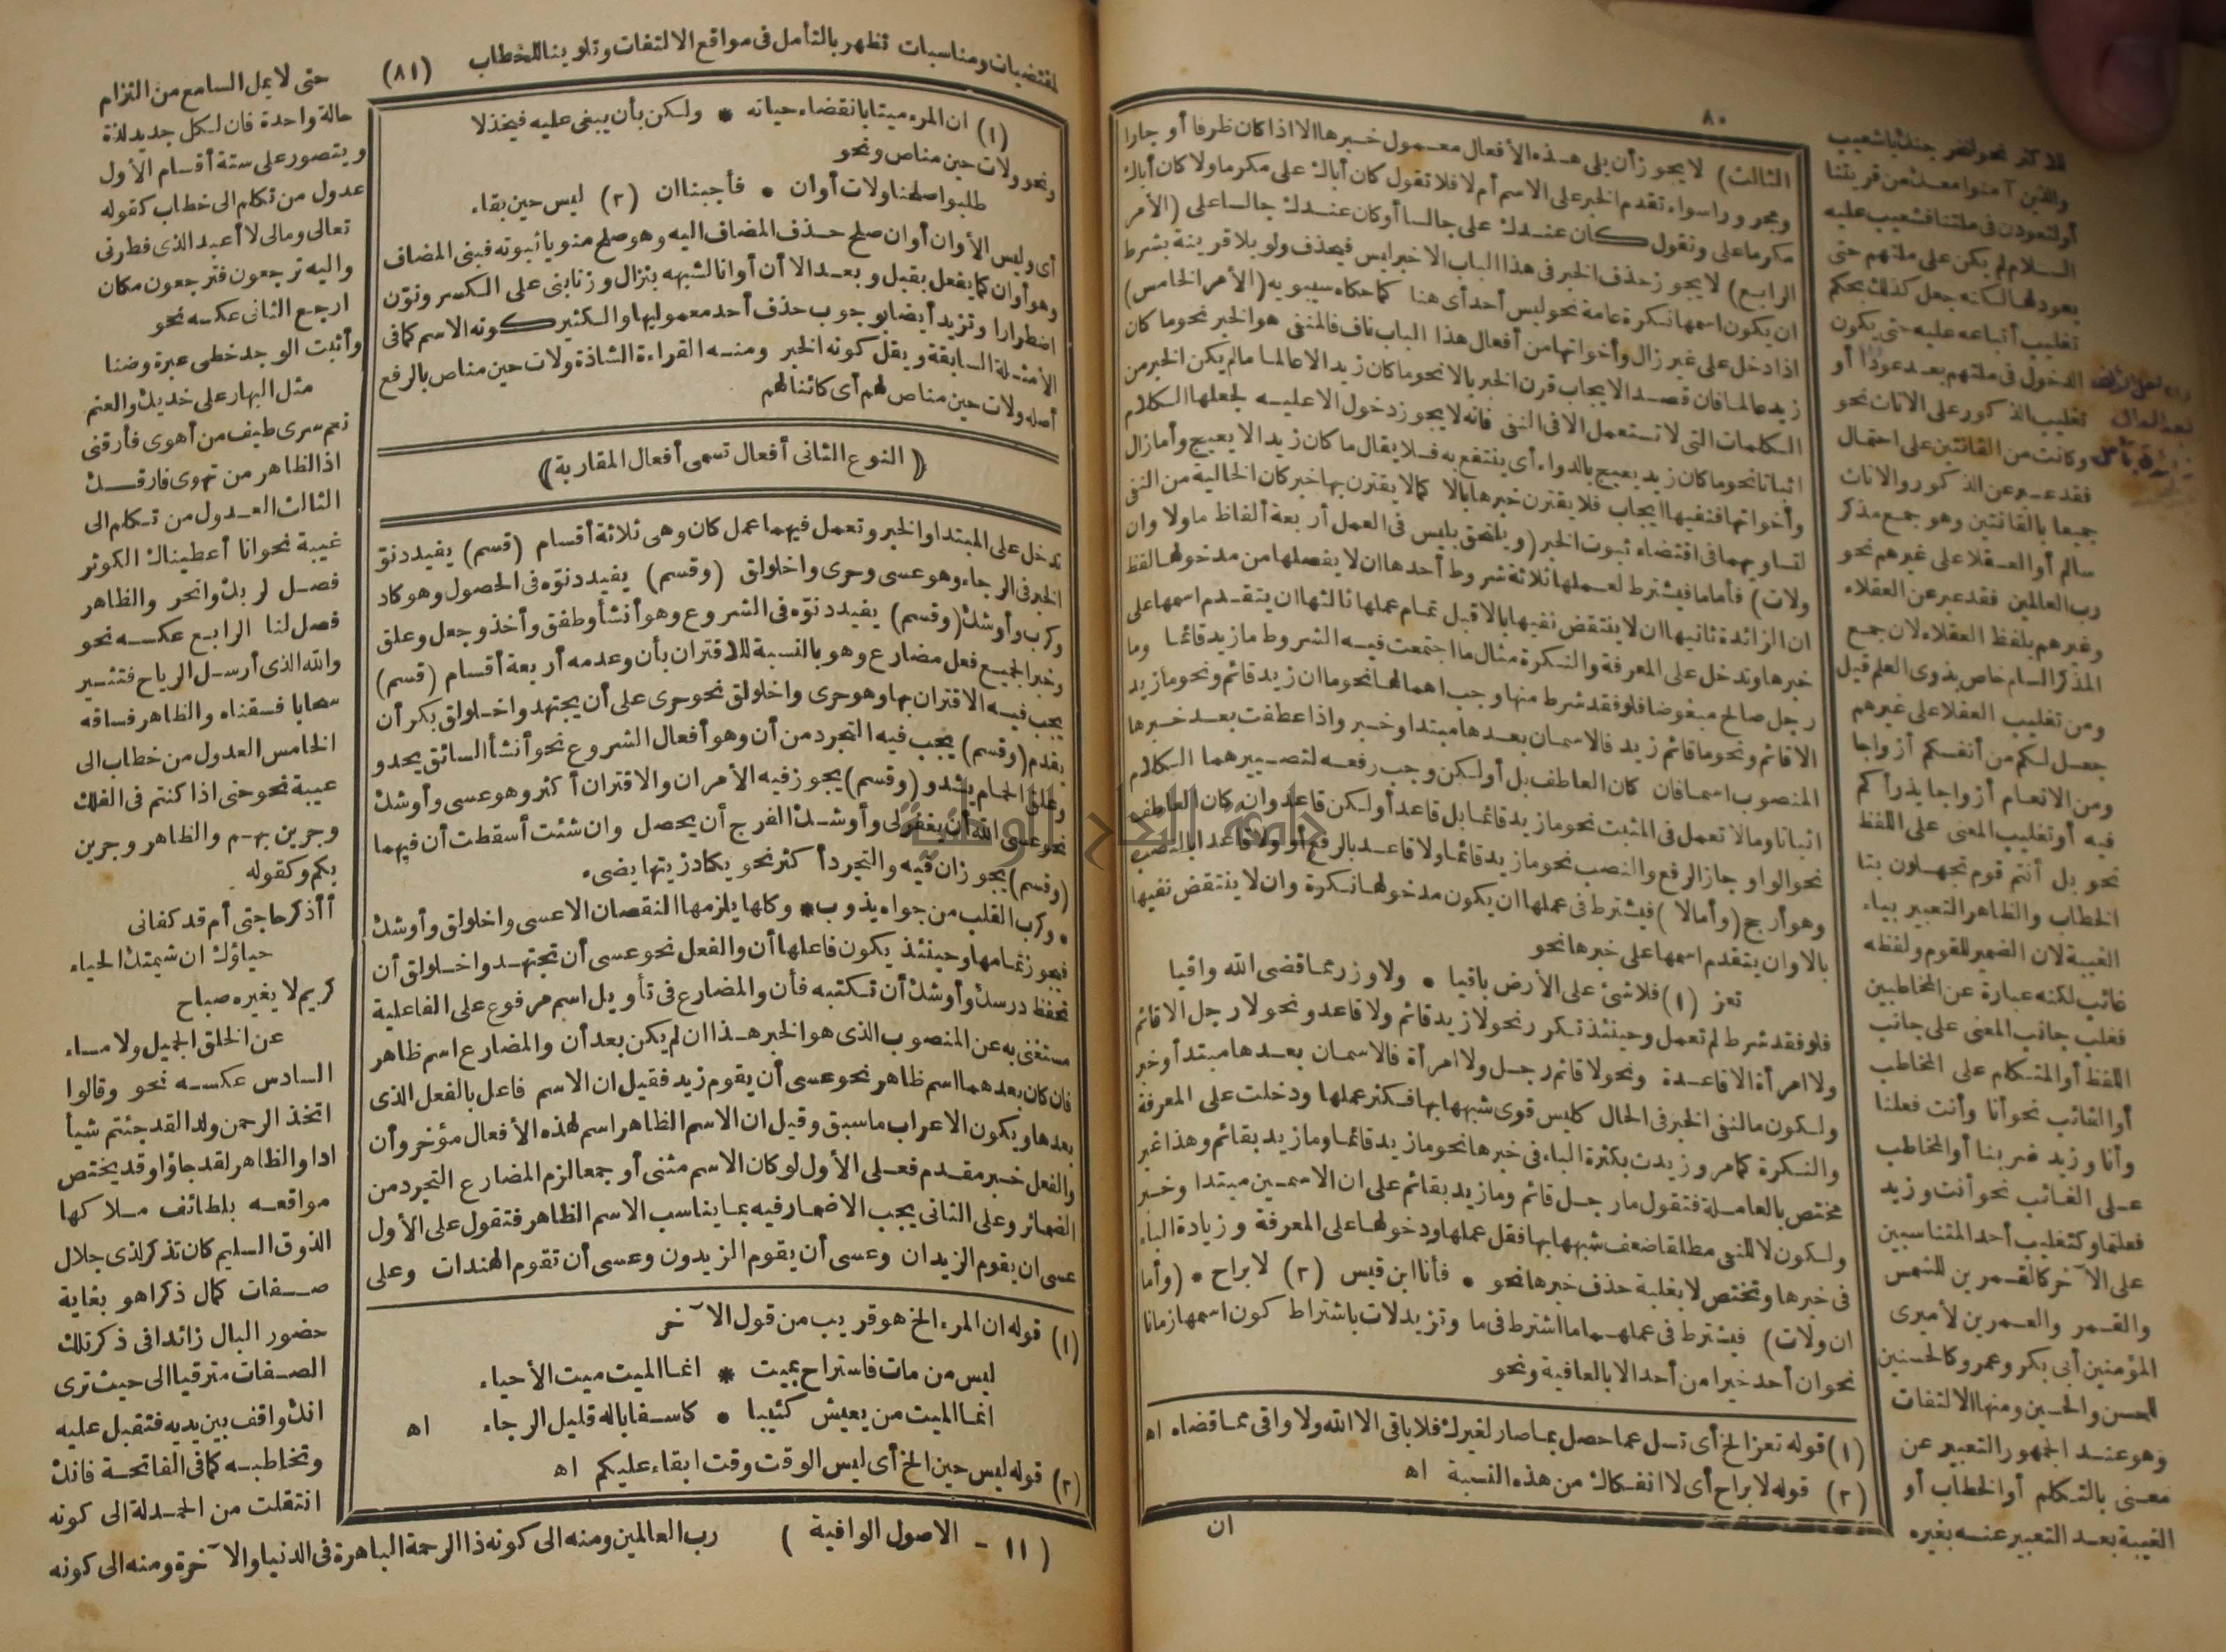 ٨٠
الثالث) لا يجوز أن يلى هذه الأفعال معمول خبرها الا اذا كان ظرفا أو جارا
ومجرورا سواء تقدم الخبر على الاسم أم لا فلا تقول كان أباك على مكرما ولا كان أباك
مكرما على وتقول كان عندك على جالسا أو كان عندك جالسا على (الأمر
الرابع) لا يجوز حذف الخبر فى هذا الباب الا خبر ليس فيحذف ولو بلا قرينة بشرط
ان يكون اسمها نكرة عامة نحو ليس أحد أى هنا كما حكاه سيبويه (الأمر الخامس)
اذا دخل على غير زال وأخواتها من أفعال هذا الباب ناف فالمنفى هو الخبر نحو ما كان
زيد عالما فان قصد الايجاب قرن الخبر بالا نحو ما كان زيد الا عالما ما لم يكن الخبر من
الكلمات التى لا تستعمل الا فى النفى فانه لا يجوز دخول الا عليه لجعلها الكلام
اثباتا نحو ما كان زيد يعيج بالدواء أى ينتفع به فلا يقال ما كان زيد الا يعيج وأما زال
وأخواتها فنفيها ايجاب فلا يقترن خبرها بالا كما لا يقترن بها خبر كان الخالية من النفى
لتساويهما فى اقتضاء ثبوت الخبر (ويلحق بليس فى العمل أربعة ألفاظ ما ولا وان
ولات) فأما ما فيشترط لعملها ثلاثة شروط أحدها ان لا يفصلها من مدخولها لفظ
ان الزائدة ثانيها ان لا ينتقض نفيها بالا قبل تمام عملها ثالثها ان يتقدم اسمها على
خبرها وتدخل على المعرفة والنكرة مثال ما اجتمعت فيه الشروط ما زيد قائما وما
رجل صالح مبغوضا فلو فقد شرط منها وجب اهمالها نحو ما ان زيد قائم ونحو ما زيد
الا قائم ونحو ما قائم زيد فالاسمان بعدها مبتدا وخبر واذا عطفت بعد خبرها
المنصوب اسما فان كان العاطف بل أو لكن وجب رفعه لتصييرهما الكلام
اثباتا وما لا تعمل فى المثبت نحو ما زيد قائما بل قاعد أو لكن قاعد وان كان العاطف
نحو الواو جاز الرفع والنصب نحو ما زيد قائما ولا قاعد بالرفع أو ولا قاعدا بالنصب
وهو أرجح (وأما لا) فيشترط فى عملها ان يكون مدخولها نكرة وان لا ينتقض نفيها
بالا وان يتقدم اسمها على خبرها نحو
تعز (١) فلا شئ على الأرض باقيا • ولا وزر مما قضى الله واقيا
فلو فقد شرط لم تعمل وحينئذ تكرر نحو لا زيد قائم ولا قاعد ونحو لا رجل الا قائم
ولا امرأة الا قاعدة ونحو لا قائم رجل ولا امرأة فالاسمان بعدها مبتدأ وخبر
ولكون ما لنفى الخبر فى الحال كليس قوى شبهها بها فكثر عملها ودخلت على المعرفة
والنكرة كما مر وزيدت بكثرة الباء فى خبرها نحو ما زيد قائما وما زيد بقائم وهذا غير
مختص بالعاملة فتقول ما رجل قائم وما زيد بقائم على ان الاسمين مبتدا وخبر
ولكون لا للنفى مطلقا ضعف شبهها بها فقل عملها ودخولها على المعرفة وزيادة الباء
فى خبرها وتختص لا بغلبة حذف خبرها نحو • فأنا ابن قيس (٢) لا براح • (وأما
ان ولات) فيشترط فى عملهما ما اشترط فى ما وتزيد لات باشتراط كون اسمها زمانا
نحو ان أحد خيرا من أحد الا بالعافية ونحو
(١) قوله تعز الخ أى تسل عما حصل بما صار لغيرك فلا باقى الا الله ولا واقى مما قضاه اه
(٢) قوله لا براح أى لا انفكاك من هذه النسبة اه
ان
للاكثر نحو لنخرجنك يا شعيب
والذين آمنوا معك من قريتنا
أو لتعودن فى ملتنا فشعيب عليه
السلام لم يكن على ملتهم حتى
يعود لها لكنه جعل كذلك بحكم
تغليب أتباعه عليه حتى يكون
الدخول فى ملتهم بعد عودا أو
تغليب الذكور على الاناث نحو
وكانت من القانتين على احتمال
فقد عبر عن الذكور والاناث
جميعا بالقانتين وهو جمع مذكر
سالم أو العقلا على غيرهم نحو
رب العالمين فقد عبر عن العقلاء
وغيرهم بلفظ العقلاء لان جمع
المذكر السالم خاص بذوى العلم قيل
ومن تغليب العقلا على غيرهم
جعل لكم من أنفسكم أزواجا
ومن الانعام أزواجا يذرأكم
فيه أو تغليب المعنى على اللفظ
نحو بل أنتم قوم تجهلون بتا
الخطاب والظاهر التعبير بياء
الغيبة لان الضمير للقوم ولفظه
غائب لكنه عبارة عن المخاطبين
فغلب جانب المعنى على جانب
اللفظ أو المتكلم على المخاطب
أو الغائب نحو أنا وأنت فعلنا
وأنا وزيد ضربنا أو المخاطب
على الغائب نحو أنت وزيد
فعلتما وكتغليب أحد المتناسبين
على الآخر كالقمرين للشمس
والقمر والعمرين لأميرى
المؤمنين أبى بكر وعمر وكالحسنين
للحسن والحسين ومنها الالتفات
وهو عند الجمهور التعبير عن
معنى بالتكلم أو الخطاب أو
الغيبة بعد التعبير عنه بغيره
لمقتضيات ومناسبات تظهر بالتأمل فى مواقع الالتفات وتلوينا للخطاب (٨١)
(١) ان المرء ميتا بانقضاء حياته * ولكن بأن يبغى عليه فيخذلا
ونحو ولات حين مناص ونحو
طلبوا صلحنا ولات أوان • فأجبنا ان (٢) ليس حين بقاء
أى وليس الأوان أوان صلح حذف المضاف اليه وهو صلح منويا ثبوته فبنى المضاف
وهو أوان كما يفعل بقبل وبعد الا أن أوانا لشبهه بنزال وزنا بنى على الكسر ونوّن
اضطرارا وتزيد أيضا بوجوب حذف أحد معموليها والكثير كونه الاسم كما فى
الأمثلة السابقة ويقل كونه الخبر ومنه القراءة الشاذة ولات حين مناص بالرفع
أصله ولات حين مناص لهم أى كائنا لهم
﴿ النوع الثانى أفعال تسمى أفعال المقاربة ﴾
تدخل على المبتدا والخبر وتعمل فيهما عمل كان وهى ثلاثة أقسام (قسم) يفيد دنوّ
الخبر فى الرجاء وهو عسى وحرى واخلولق (وقسم) يفيد دنوّه فى الحصول وهو كاد
وكرب وأوشك (وقسم) يفيد دنوّه فى الشروع وهو أنشأ وطفق وأخذ وجعل وعلق
وخبر الجميع فعل مضارع وهو بالنسبة للاقتران بأن وعدمه أربعة أقسام (قسم)
يجب فيه الاقتران بها وهو حرى واخلولق نحو حرى على أن يجتهد واخلولق بكر أن
يقدم (وقسم) يجب فيه التجرد من أن وهو أفعال الشروع نحو أنشأ السائق يحدو
وعلق الحمام يشدو (وقسم) يجوز فيه الأمران والاقتران أكثر وهو عسى وأوشك
نحو عسى الله أن يغفر لى وأوشك الفرج أن يحصل وان شئت أسقطت أن فيهما
(وقسم) يجوز ان فيه والتجرد أكثر نحو يكاد زيتها يضىء
• وكرب القلب من جواه يذوب • وكلها يلزمها النقصان الا عسى واخلولق وأوشك
فيجوز تمامها وحينئذ يكون فاعلها أن والفعل نحو عسى أن تجتهد واخلولق أن
تحفظ درسك وأوشك أن تكتبه فأن والمضارع فى تأويل اسم مرفوع على الفاعلية
مستغنى به عن المنصوب الذى هو الخبر هذا ان لم يكن بعد أن والمضارع اسم ظاهر
فان كان بعدهما اسم ظاهر نحو عسى أن يقوم زيد فقيل ان الاسم فاعل بالفعل الذى
بعدها ويكون الاعراب ما سبق وقيل ان الاسم الظاهر اسم لهذه الأفعال مؤخر وأن
والفعل خبر مقدم فعلى الأول لو كان الاسم مثنى أو جمعا لزم المضارع التجرد من
الضمائر وعلى الثانى يجب الاضمار فيه بما يناسب الاسم الظاهر فتقول على الأول
عسى ان يقوم الزيدان وعسى أن يقوم الزيدون وعسى أن تقوم الهندات وعلى
(١) قوله ان المرء الخ هو قريب من قول الآخر
ليس من مات فاستراح بميت * انما الميت ميت الأحياء
انما الميت من يعيش كئيبا • كاسفا باله قليل الرجاء اه
(٢) قوله ليس حين الخ أى ليس الوقت وقت ابقاء عليكم اه
(١١ - الاصول الوافية)
حتى لا يمل السامع من التزام
حالة واحدة فان لكل جديد لذة
ويتصور على ستة أقسام الأول
عدول من تكلم الى خطاب كقوله
تعالى ومالى لا أعبد الذى فطرنى
واليه ترجعون فترجعون مكان
ارجع الثانى عكسه نحو
وأثبت الوجد خطى عبرة وضنا
مثل البهار على خديك والعنم
نعم سرى طيف من أهوى فأرقنى
اذ الظاهر من تهوى فارقك
الثالث العدول من تكلم الى
غيبة نحو انا أعطيناك الكوثر
فصل لربك وانحر والظاهر
فصل لنا الرابع عكسه نحو
والله الذى أرسل الرياح فتثير
سحابا فسقناه والظاهر فساقه
الخامس العدول من خطاب الى
غيبة نحو حتى اذا كنتم فى الفلك
وجرين بهم والظاهر وجرين
بكم وكقوله
أأذكر حاجتى أم قد كفانى
حياؤك ان شيمتك الحياء
كريم لا يغيره صباح
عن الخلق الجميل ولا مساء
السادس عكسه نحو وقالوا
اتخذ الرحمن ولدا لقد جئتم شيأ
ادا والظاهر لقد جاؤا وقد يختص
مواقعه بلطائف ملاكها
الذوق السليم كان تذكر لذى جلال
صفات كمال ذكرا هو بغاية
حضور البال زائدا فى ذكر تلك
الصفات مترقيا الى حيث ترى
انك واقف بين يديه فتقبل عليه
وتخاطبه كما فى الفاتحة فانك
انتقلت من الحمدلة الى كونه
رب العالمين ومنه الى كونه ذا الرحمة الباهرة فى الدنيا والآخرة ومنه الى كونه
جامعة النجاح الوطنية